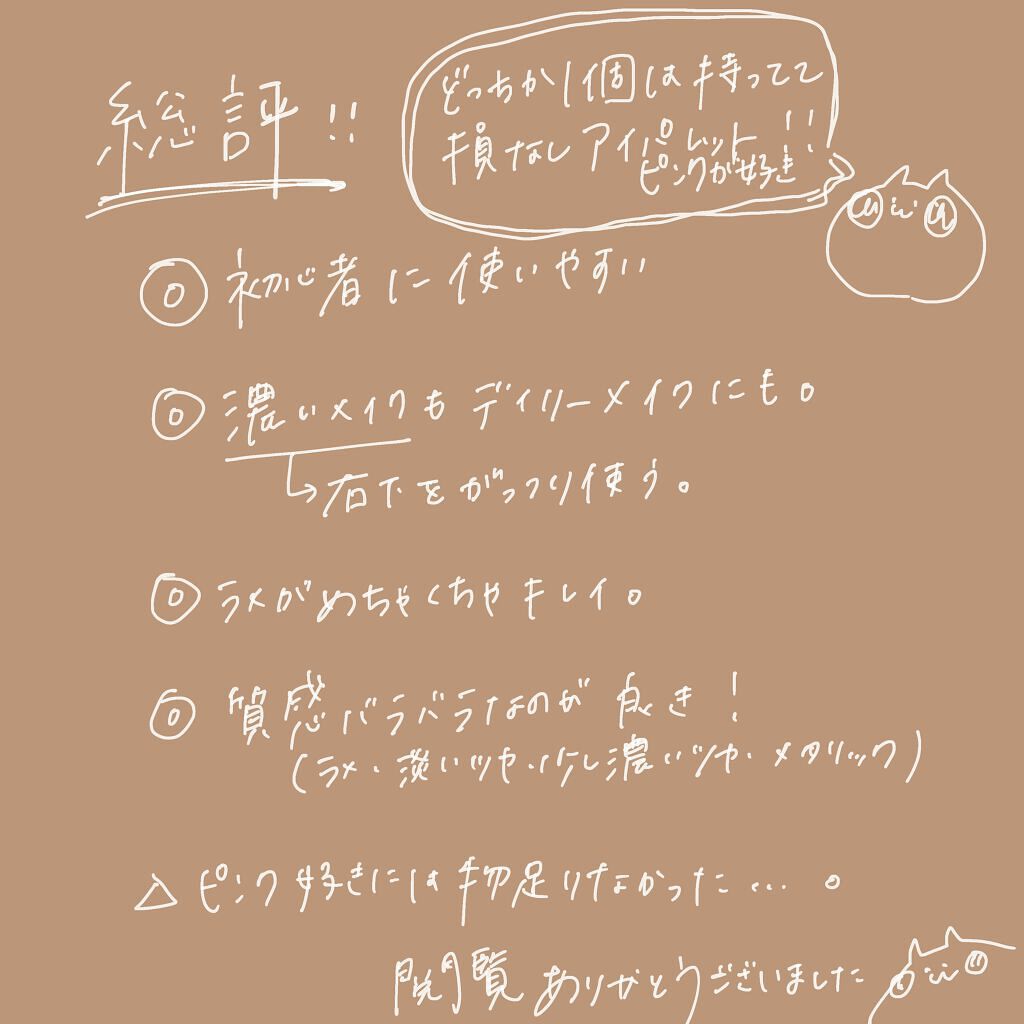 総評!!
どっちか1個は持ってて
損なしアイパレット!!
ピンクが好き
◎初心者に使いやすい
◎濃いメイクもデイリーメイクにも。
→右下をがっつり使う。
◎ラメがめちゃくちゃキレイ。
◎質感バラバラなのが良き!
(ラメ・淡いツヤ・少し濃いツヤ・メタリック)
△ピンク好きには物足りなかった…。
閲覧ありがとうございました